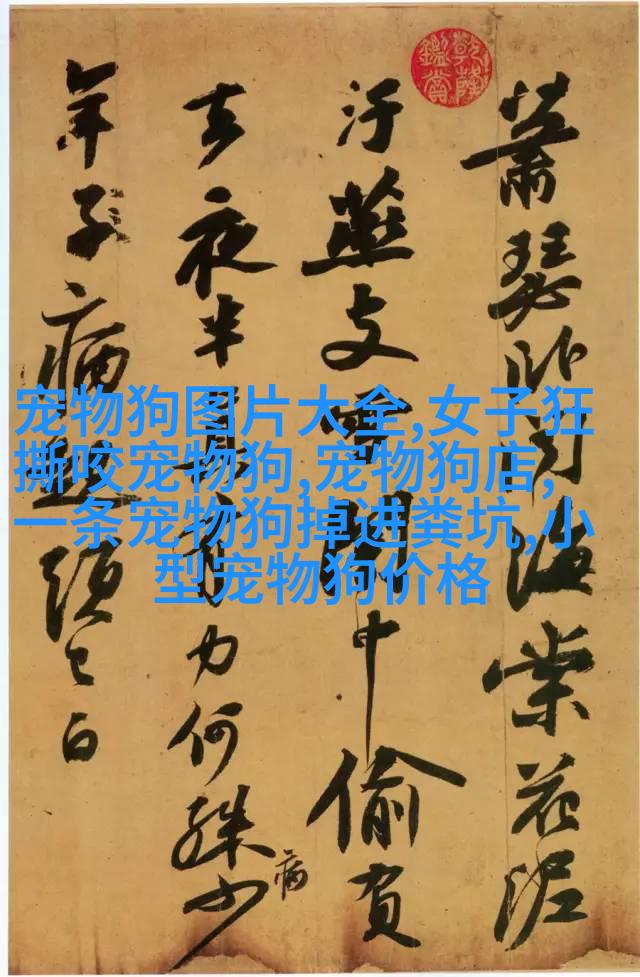 乾隆鑑賞
蕭瑟卧聞海棠花泥
汙燕支雪闇中偷負
去夜半真有力何殊少
病
年子病起頭已白
宠物狗图片大全,女子狂
撕咬宠物狗,宠物狗店,
一条宠物狗掉进粪坑,小
型宠物狗价格